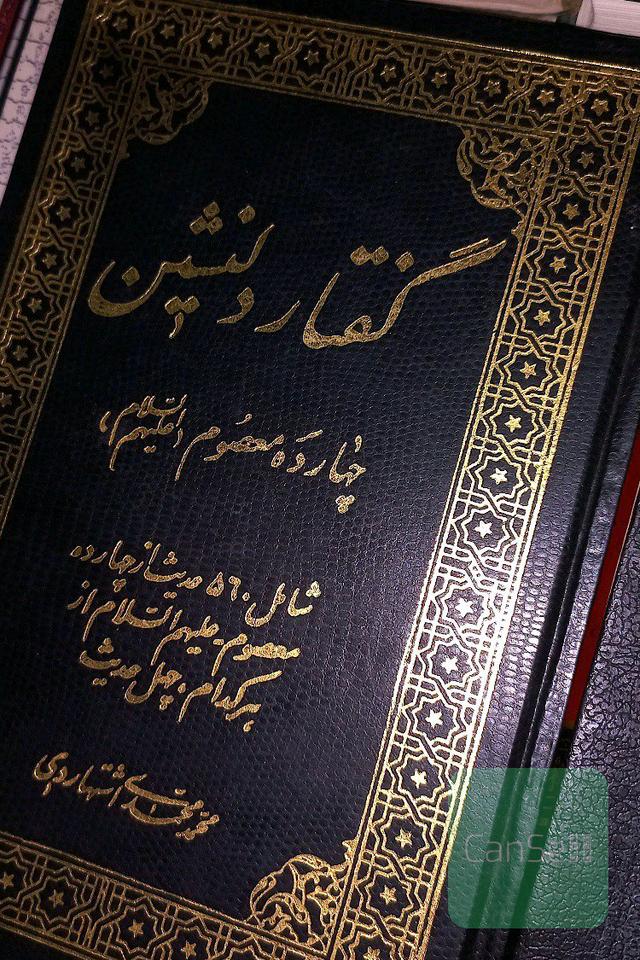 گفتار دلنشین
چهارده معصوم (علیهم السلام)
شامل ۵۶۰ حدیث از چهارده
معصوم علیهم السلام از
هر کدام، چهل حدیث
محمد محمدی اشتهاردی
CanSell